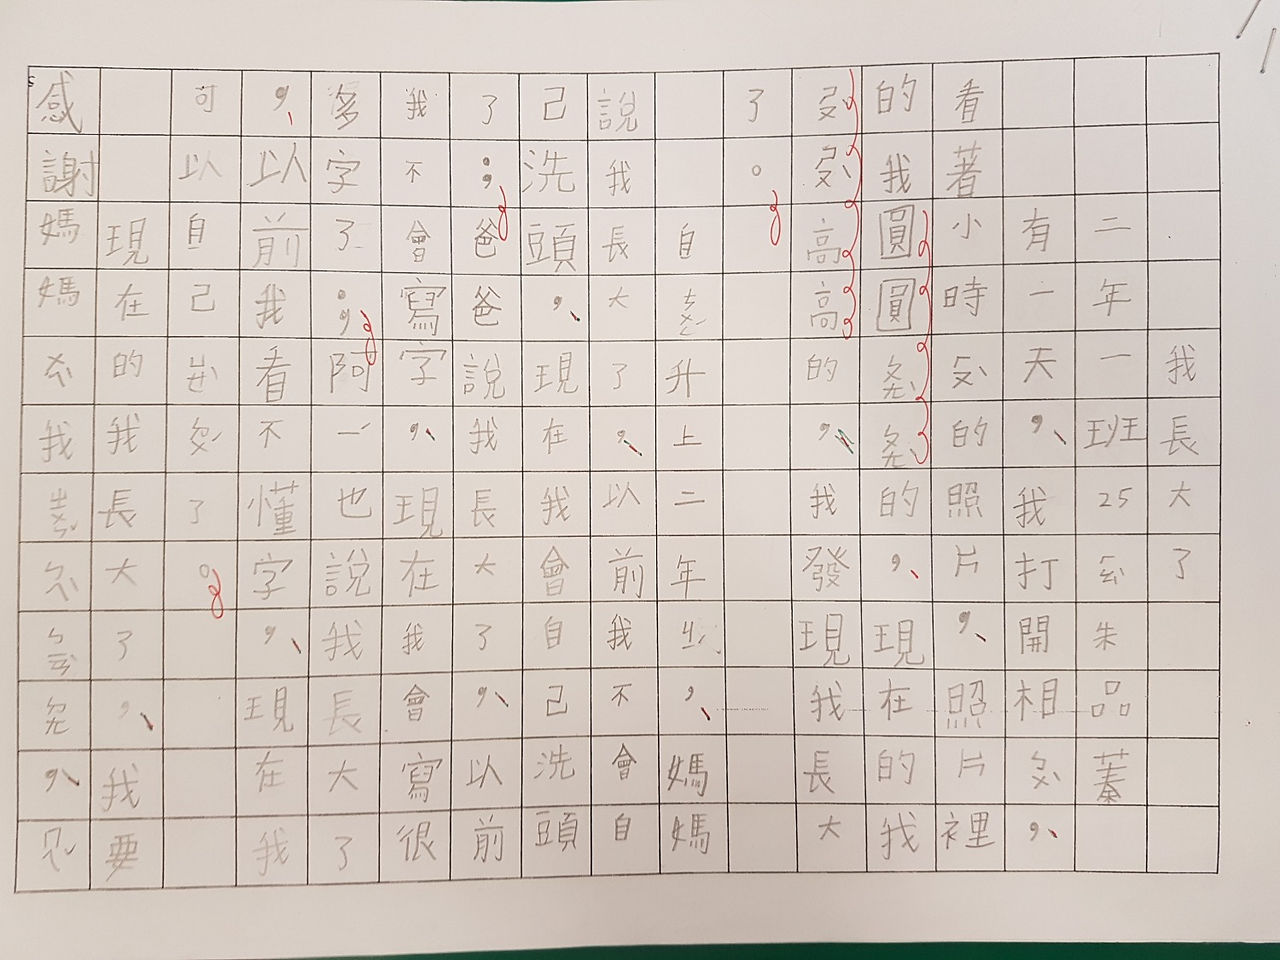 我長大了
二年一班25朱品蓁
有一天，我打開相ㄘㄜˋ，
看著小時ㄏㄡˋ的照片，照片裡
的我圓圓ㄤㄤ的，現在的我
高高的，我發現我長大
了。
自升上二年，媽媽
說我長大了，以前我不會自
己洗頭，現在我會自己洗頭
了；爸爸說我長大了，以前
我不會寫字，現在我會寫很
多字了；阿ㄧˊ也說我長大了
，以前我看不懂字，現在我
可以自己了。
現在的我長大了，我要
感謝媽媽我，